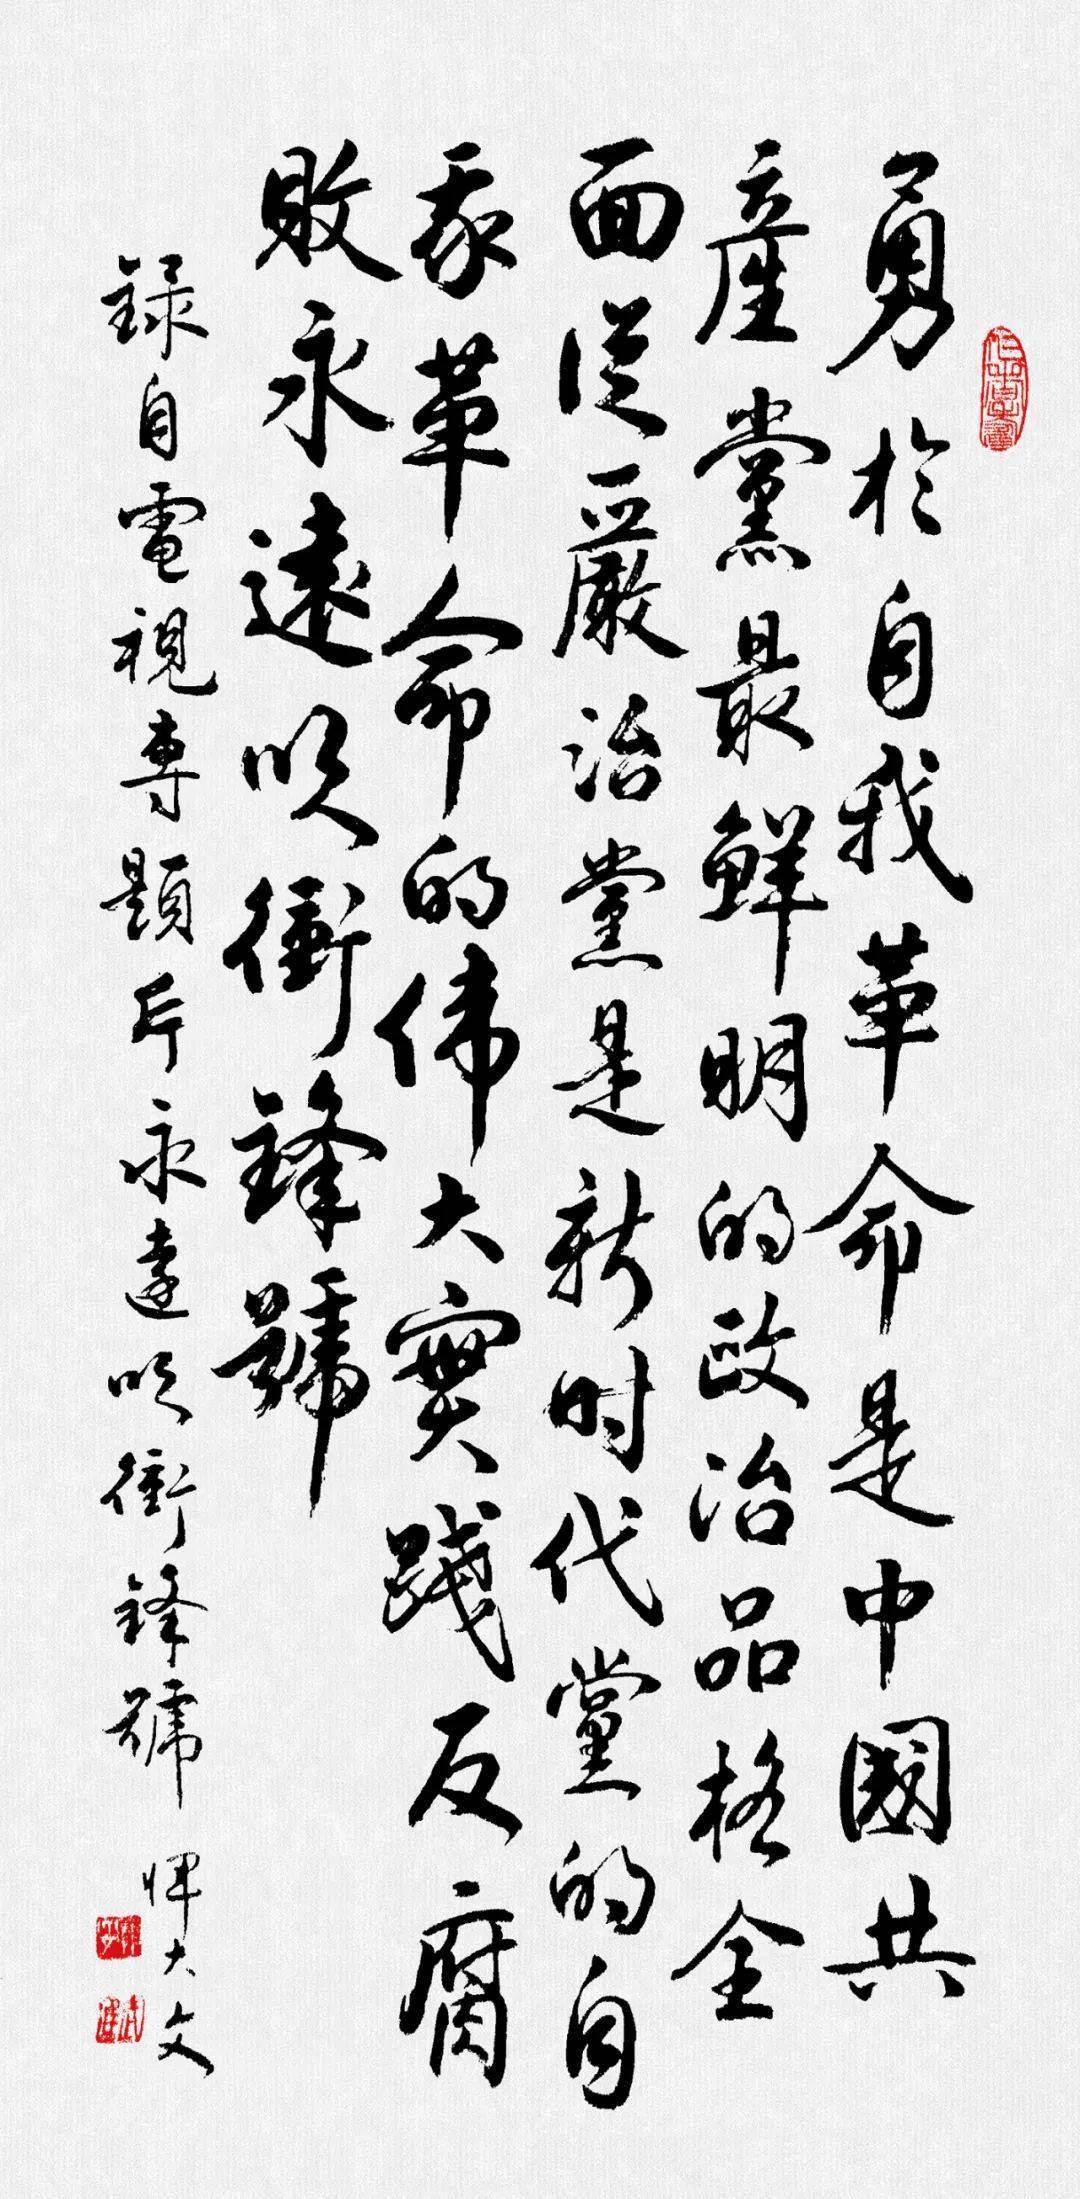 勇於自我革命是中國共
產黨最鮮明的政治品格全
面從嚴治黨是新时代黨的自
我革命的偉大實踐反腐
敗永遠吹衝鋒號
録自電視專題片永遠吹衝鋒號
惲大文